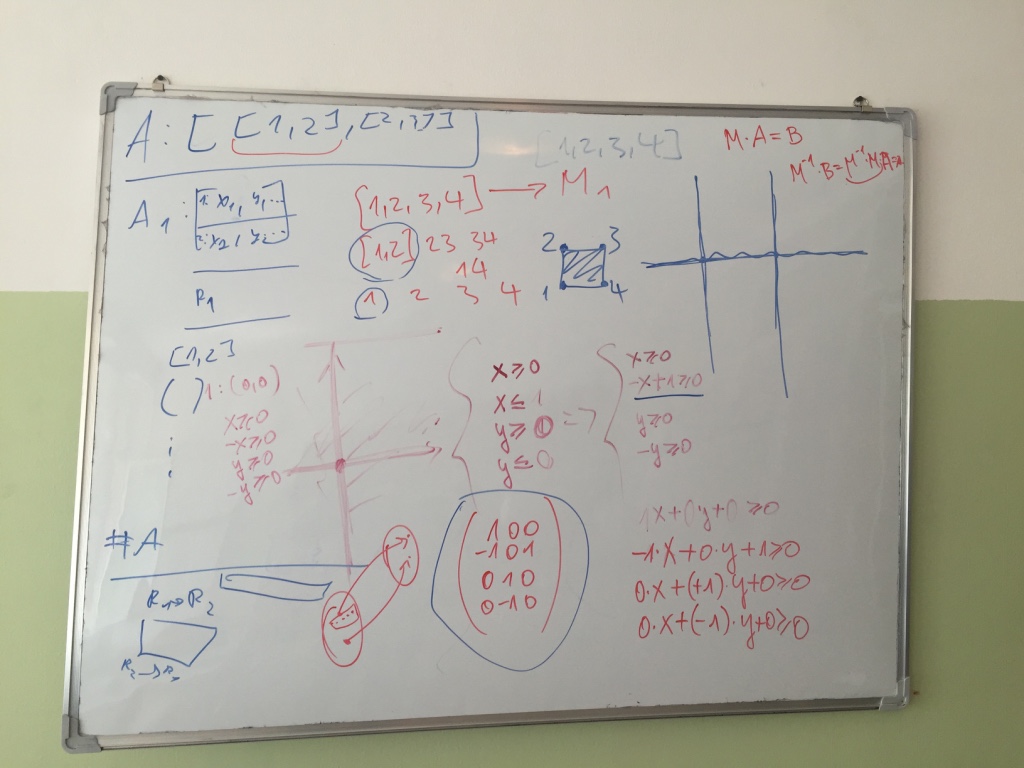 A: [ [1,2], [2,3] ]
[1,2,3,4]
M·A=B
M⁻¹·B=M⁻¹·M·A=A
A₁:
1: x₁, y₁...
x₂, y₂...
R₁
[1,2,3,4] → M₁
[1,2] 23 34
14
1 2 3 4
2 3
1 4
[1,2]
( ) 1:(0,0)
x≥0
-x≥0
y≥0
-y≥0
x≥0
x≤1
y≥0
y≤0
=>
x≥0
-x+1≥0
y≥0
-y≥0
#A
R₁→R₂
R₂→R₃
1 0 0
-1 0 1
0 1 0
0 -1 0
1x+0y+0≥0
-1·x+0·y+1≥0
0·x+(+1)·y+0≥0
0·x+(-1)·y+0≥0